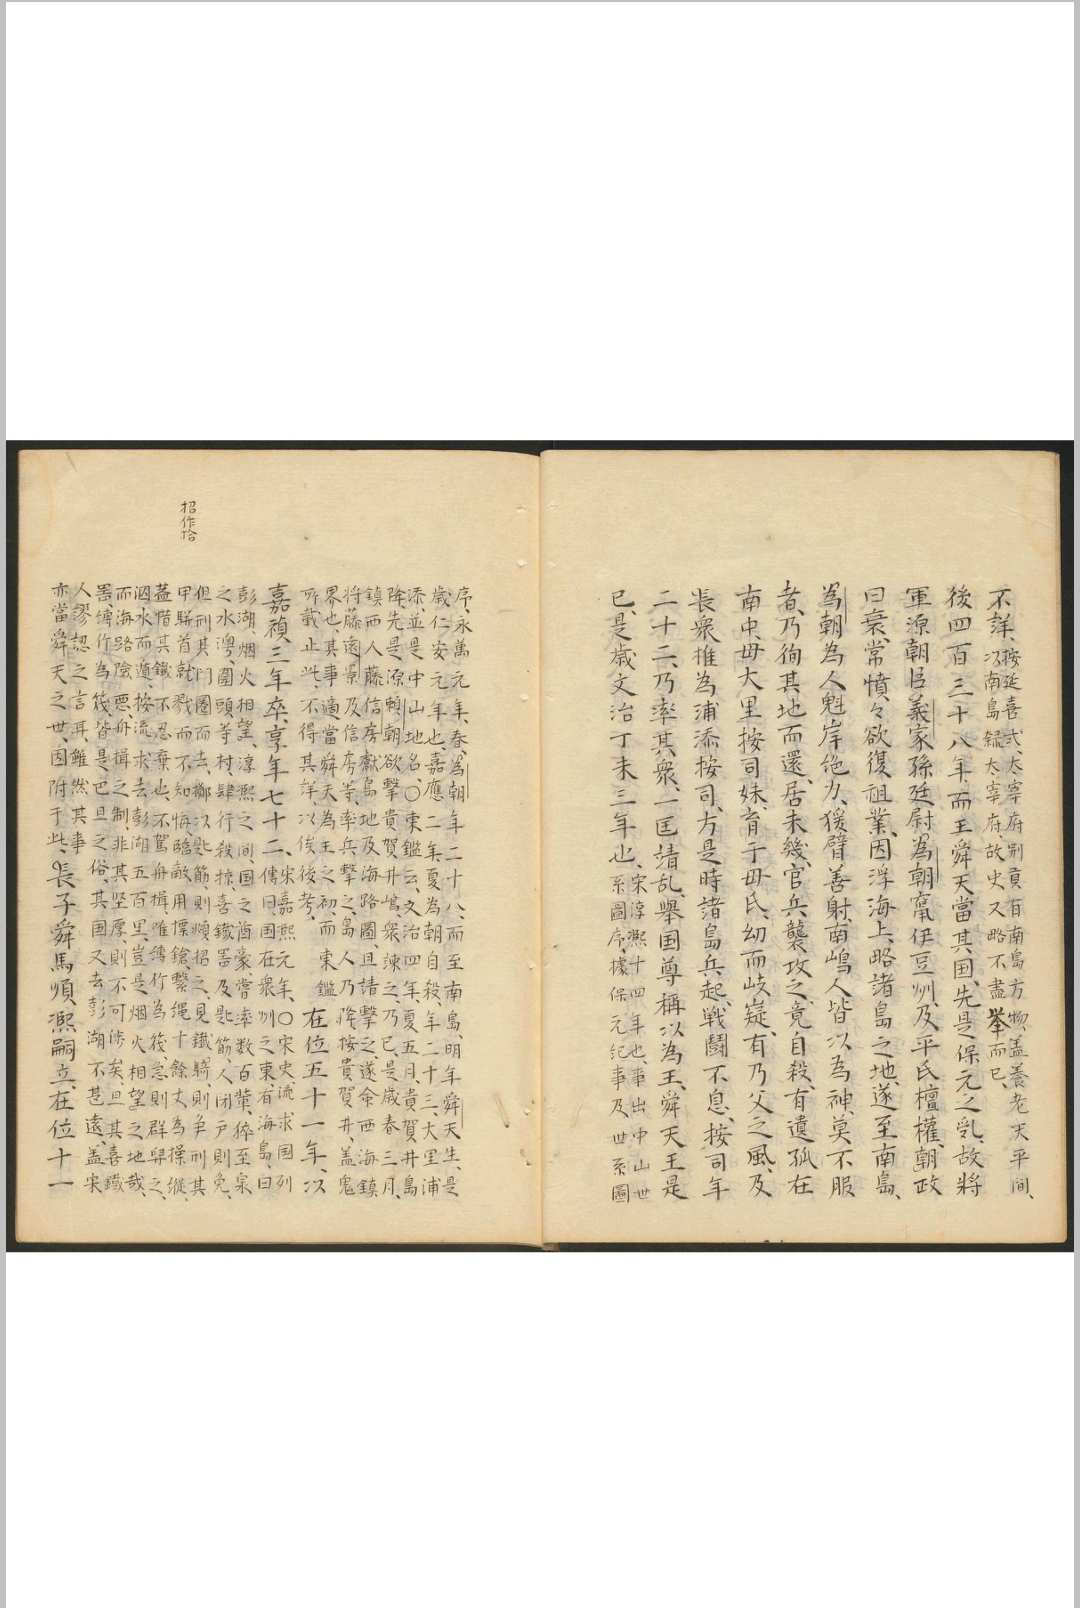 不詳、按延喜式、太宰府別貢有南島方物、盖養老天平間、
以南島錄太宰府、故史又略不盡举而已、
後四百三十八年、而王舜天當其国、先是保元之乱、故將
軍源朝臣義家孫廷尉為朝竄伊豆州、及平氏檀權、朝政
日衰、常憤々欲復祖業、因浮海上、略諸島之地、遂至南島、
為朝為人魁岸絶力、猨臂善射、南嶋人皆以為神、莫不服
者、乃徇其地而還、居未幾、官兵襲攻之、竟自殺、有遺孤在
南中、母大里按司妹、育于母氏、幼而岐嶷、有乃父之風、及
長衆推為浦添按司、方是時諸島兵起、戦鬪不息、按司年
二十二、乃率其衆、一匡靖乱、舉国尊稱以為王、舜天王是
已、是歳文治丁未三年也、宋淳熙十四年也、事出中山世
系圖序、據保元記事及世系圖
序、永萬元年、春、為朝年二十八、而至南島、明年舜天生、是
歳仁安元年也、嘉應二年夏為朝自殺、年二十三、大里浦
添、並是中山地名、〇東鑑云、文治四年夏五月、貴賀井島
降、先是源頼朝欲擊貴賀井嶋、衆諫之、乃已、是歳春三月、
鎮西人藤信房獻島地及海路圖且請擊之、遂命西海鎮
将藤遠景及信房等、率兵擊之、島人乃降、按貴賀井、盖鬼
界也、其事適當舜天為王之初、而東鑑
所載止此、不得其詳、以俟後考、在位五十一年、以
嘉禎三年卒、享年七十二、宋嘉熙元年、〇宋史流求国列
傳曰、国在衆州之東、有海島、曰
彭湖、烟火相望、淳熙之间、国之酋豪、嘗率数百輩、猝至泉
之水澳、圍頭等村、肆行殺掠、喜鐵噐及匙筯、人闭户則免、
但刓其门圈而去、擲以匙筯、則頫招之、見鐵騎、則争刓其
甲、駢首就戮而不知悔、臨敵用摽鎗、繫縄十餘丈為操縱、
盖惜其鐵不忍棄也、不駕舟楫、惟縛竹為筏、急則群舁之、
泅水而遁、按流求去彭湖五百里、豈是烟火相望之地哉、
而海路險悪、舟楫之制、非其坚厚、則不可涉矣、且其喜鐵
噐縛竹為筏、皆是巴旦之俗、其国又去彭湖不甚遠、盖宋
人謬認之言耳、雖然其事
亦當舜天之世、因附于此、長子舜馬順熙嗣立、在位十一
招作拾